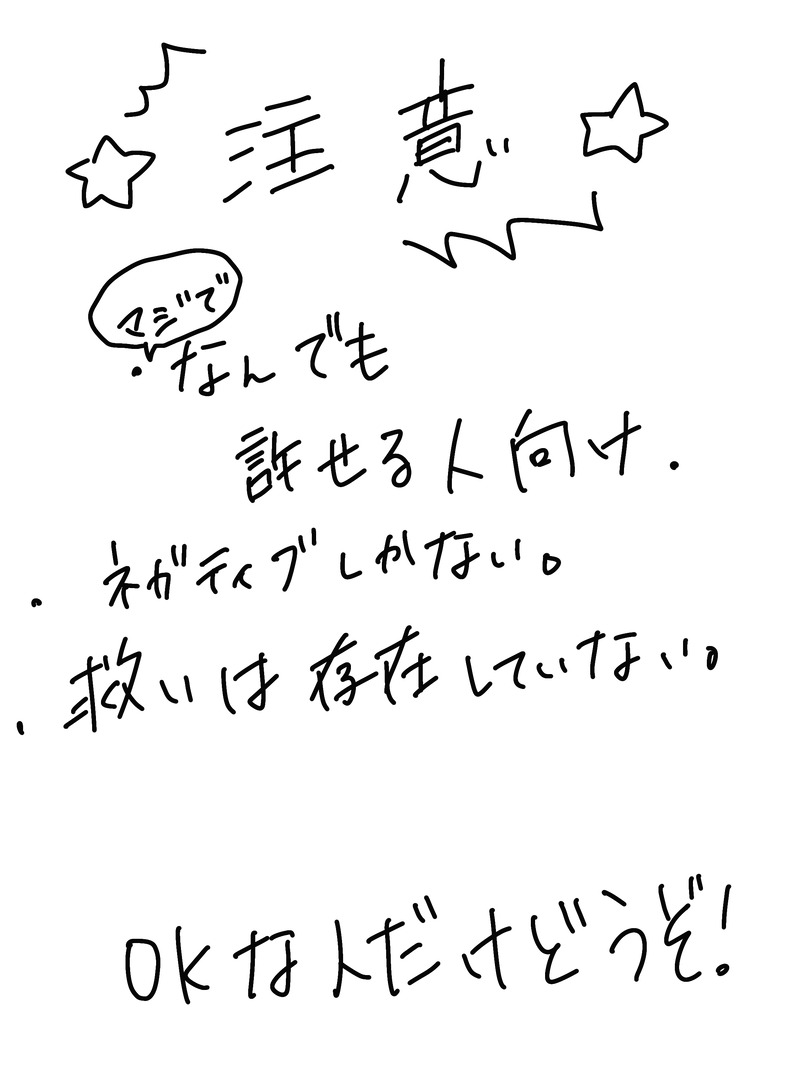 注意
マジで
・なんでも
許せる人向け.
・ネガティブしかない。
・救いは存在していない。
OKな人だけどうぞ!